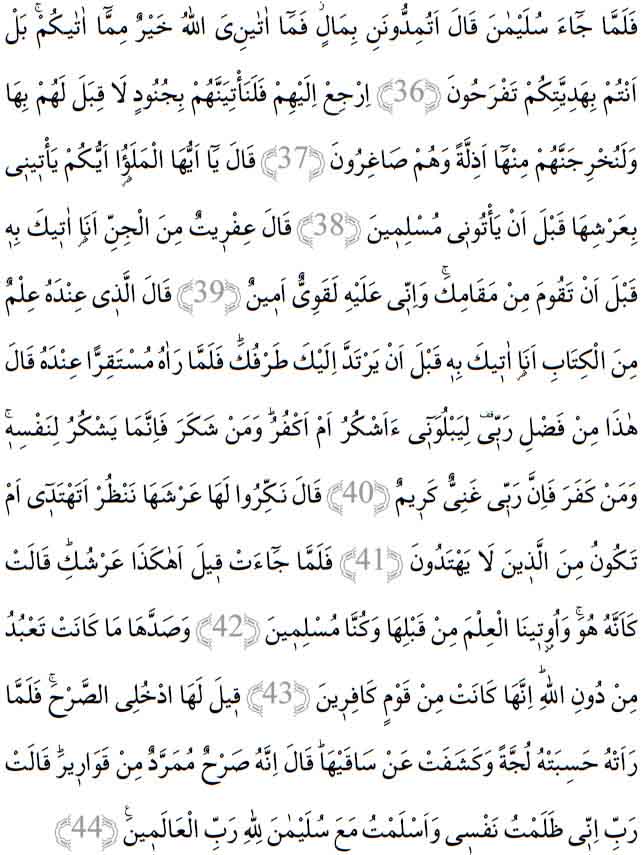 فَلَمَّا جَٓاءَ سُلَيْمٰنَ قَالَ اَتُمِدُّونَنِ بِمَالٍۘ فَمَٓا اٰتٰينِيَ اللّٰهُ خَيْرٌ مِمَّٓا اٰتٰيكُمْۚ بَلْ
اَنْتُمْ بِهَدِيَّتِكُمْ تَفْرَحُونَ ﴿36﴾ اِرْجِعْ اِلَيْهِمْ فَلَنَأْتِيَنَّهُمْ بِجُنُودٍ لَا قِبَلَ لَهُمْ بِهَا
وَلَنُخْرِجَنَّهُمْ مِنْهَٓا اَذِلَّةً وَهُمْ صَاغِرُونَ ﴿37﴾ قَالَ يَٓا اَيُّهَا الْمَلَؤُ۬ا اَيُّكُمْ يَأْتٖينٖي
بِعَرْشِهَا قَبْلَ اَنْ يَأْتُونٖي مُسْلِمٖينَ ﴿38﴾ قَالَ عِفْرٖيتٌ مِنَ الْجِنِّ اَنَا۬ اٰتٖيكَ بِهٖ
قَبْلَ اَنْ تَقُومَ مِنْ مَقَامِكَۚ وَاِنّٖي عَلَيْهِ لَقَوِيٌّ اَمٖينٌ ﴿39﴾ قَالَ الَّذٖي عِنْدَهُ عِلْمٌ
مِنَ الْكِتَابِ اَنَا۬ اٰتٖيكَ بِهٖ قَبْلَ اَنْ يَرْتَدَّ اِلَيْكَ طَرْفُكَؕ فَلَمَّا رَاٰهُ مُسْتَقِرًّا عِنْدَهُ قَالَ
هٰذَا مِنْ فَضْلِ رَبّٖيࣞ لِيَبْلُوَنٖٓي ءَاَشْكُرُ اَمْ اَكْفُرُؕ وَمَنْ شَكَرَ فَاِنَّمَا يَشْكُرُ لِنَفْسِهٖۚ
وَمَنْ كَفَرَ فَاِنَّ رَبّٖي غَنِيٌّ كَرٖيمٌ ﴿40﴾ قَالَ نَكِّرُوا لَهَا عَرْشَهَا نَنْظُرْ اَتَهْتَدٖٓي اَمْ
تَكُونُ مِنَ الَّذٖينَ لَا يَهْتَدُونَ ﴿41﴾ فَلَمَّا جَٓاءَتْ قٖيلَ اَهٰكَذَا عَرْشُكِؕ قَالَتْ
كَاَنَّهُ هُوَۚ وَاُو۫تٖينَا الْعِلْمَ مِنْ قَبْلِهَا وَكُنَّا مُسْلِمٖينَ ﴿42﴾ وَصَدَّهَا مَا كَانَتْ تَعْبُدُ
مِنْ دُونِ اللّٰهِؕ اِنَّهَا كَانَتْ مِنْ قَوْمٍ كَافِرٖينَ ﴿43﴾ قٖيلَ لَهَا ادْخُلِي الصَّرْحَۚ فَلَمَّا
رَاَتْهُ حَسِبَتْهُ لُجَّةً وَكَشَفَتْ عَنْ سَاقَيْهَاؕ قَالَ اِنَّهُ صَرْحٌ مُمَرَّدٌ مِنْ قَوَارٖيرَؕ قَالَتْ
رَبِّ اِنّٖي ظَلَمْتُ نَفْسٖي وَاَسْلَمْتُ مَعَ سُلَيْمٰنَ لِلّٰهِ رَبِّ الْعَالَمٖينَࣖ ﴿44﴾